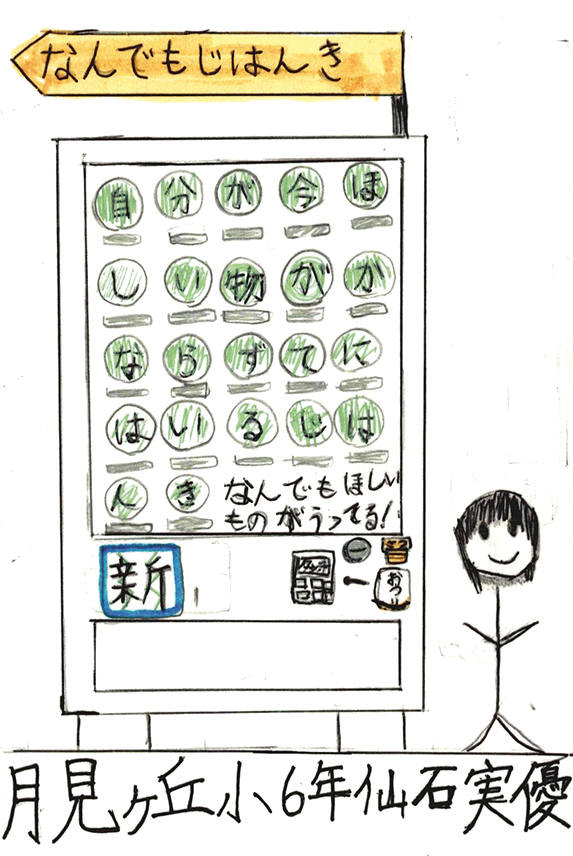 なんでもじはんき
自分が今ほ
しい物がが
ならずてに
はいるじは
んき
なんでもほしい
ものがうってる!
新
おつり
月見ヶ丘小6年仙石実優